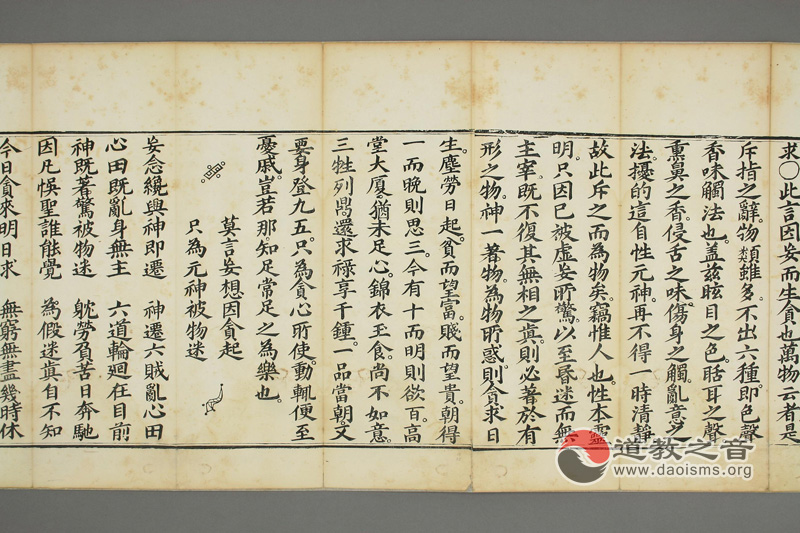 求〇此言因妄而生貪也萬物云者是
斥指之辭。物類雖多。不出六種。即色聲
香味觸法也。盖兹眩目之色。聒耳之聲
熏鼻之香。侵舌之味。傷身之觸。亂意之
法。擾的這自性元神。再不得一時清靜
故此斥之而為物矣。竊惟人也。性本靈
明。只因已被虛妄所驚。以至昏迷而無
主宰。既不復其無相之真。則必著於有
形之物。神一著物。為物所惑。則貪求日
生。塵勞日起。貧而望富。賤而望貴。朝得
一而晚則思三。今有十而明則欲百。高
堂大厦。猶未足心。錦衣玉食。尚不如意。
三牲列鼎。還求祿享千鍾。一品當朝。又
要身登九五。只為貪心所使。動輒便至
憂戚。豈若那知足常足之為樂也。
莫言妄想因貪起
只為元神被物迷
妄念纔興神即遷　神遷六賊亂心田
心田既亂身無主　六道輪迴在目前
神既著驚被物迷　躭勞負苦日奔馳
因凡悞聖誰能覺　為假迷真自不知
今日貪來明日求　無窮無盡幾時休
道教之音
www.daoisms.org